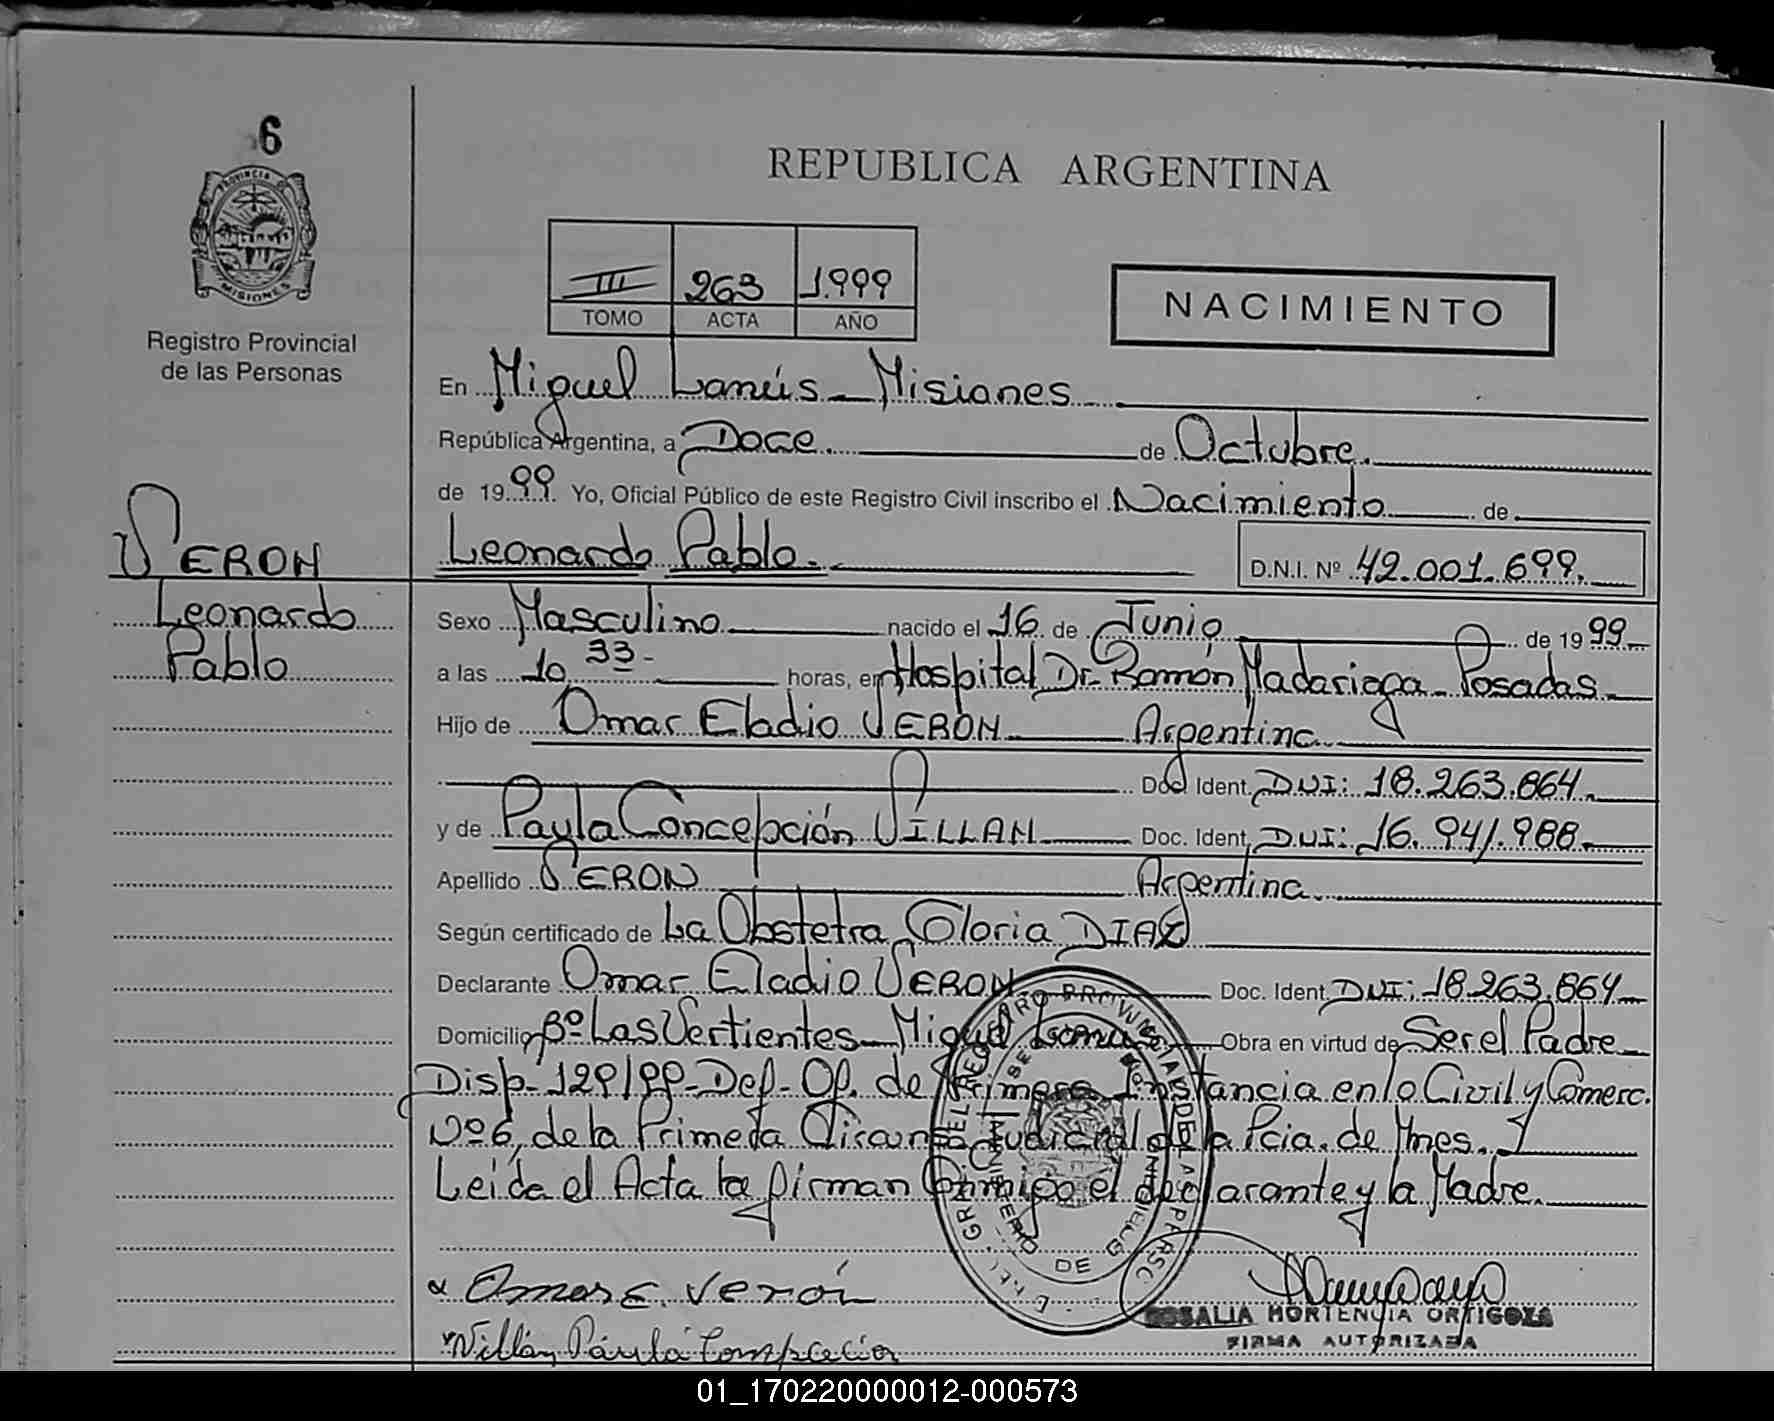 6
PROVINCIA DE
MISIONES
Registro Provincial
de las Personas
VERON
Leonardo
Pablo
REPUBLICA ARGENTINA
III 263 1.999
TOMO ACTA AÑO
NACIMIENTO
En Miguel Lanús - Misiones
República Argentina, a Doce. de Octubre.
de 1999. Yo, Oficial Público de este Registro Civil inscribo el Nacimiento de
Leonardo Pablo. D.N.I. Nº 42.001.699.
Sexo Masculino nacido el 16 de Junio de 1999
a las 10 33- horas, en Hospital Dr. Ramón Madariaga - Posadas
Hijo de Omar Eladio VERÓN Argentina
Doc. Ident. DNI: 18.263.864
y de Paula Concepción VILLAN Doc. Ident. DNI: 16.941.988
Apellido VERON Argentina
Según certificado de La Obstetra Gloria DIAZ
Declarante Omar Eladio VERON Doc. Ident. DNI: 18.263.864
Domicilio Bº Las Vertientes - Miguel Lanus Obra en virtud de Ser el Padre
Disp. 129/99 - Def. Of. de Primera Instancia en lo Civil y Comerc.
Nº 6, de la Primera Circuns. Judicial de la Pcia. de Mnes. Y
Leída el Acta la firman Conmigo el declarante y la Madre.
Omar E. Verón
Villán Paula Concepción
ROSALIA HORTENCIA ORTIGOZA
FIRMA AUTORIZADA
01_170220000012-000573